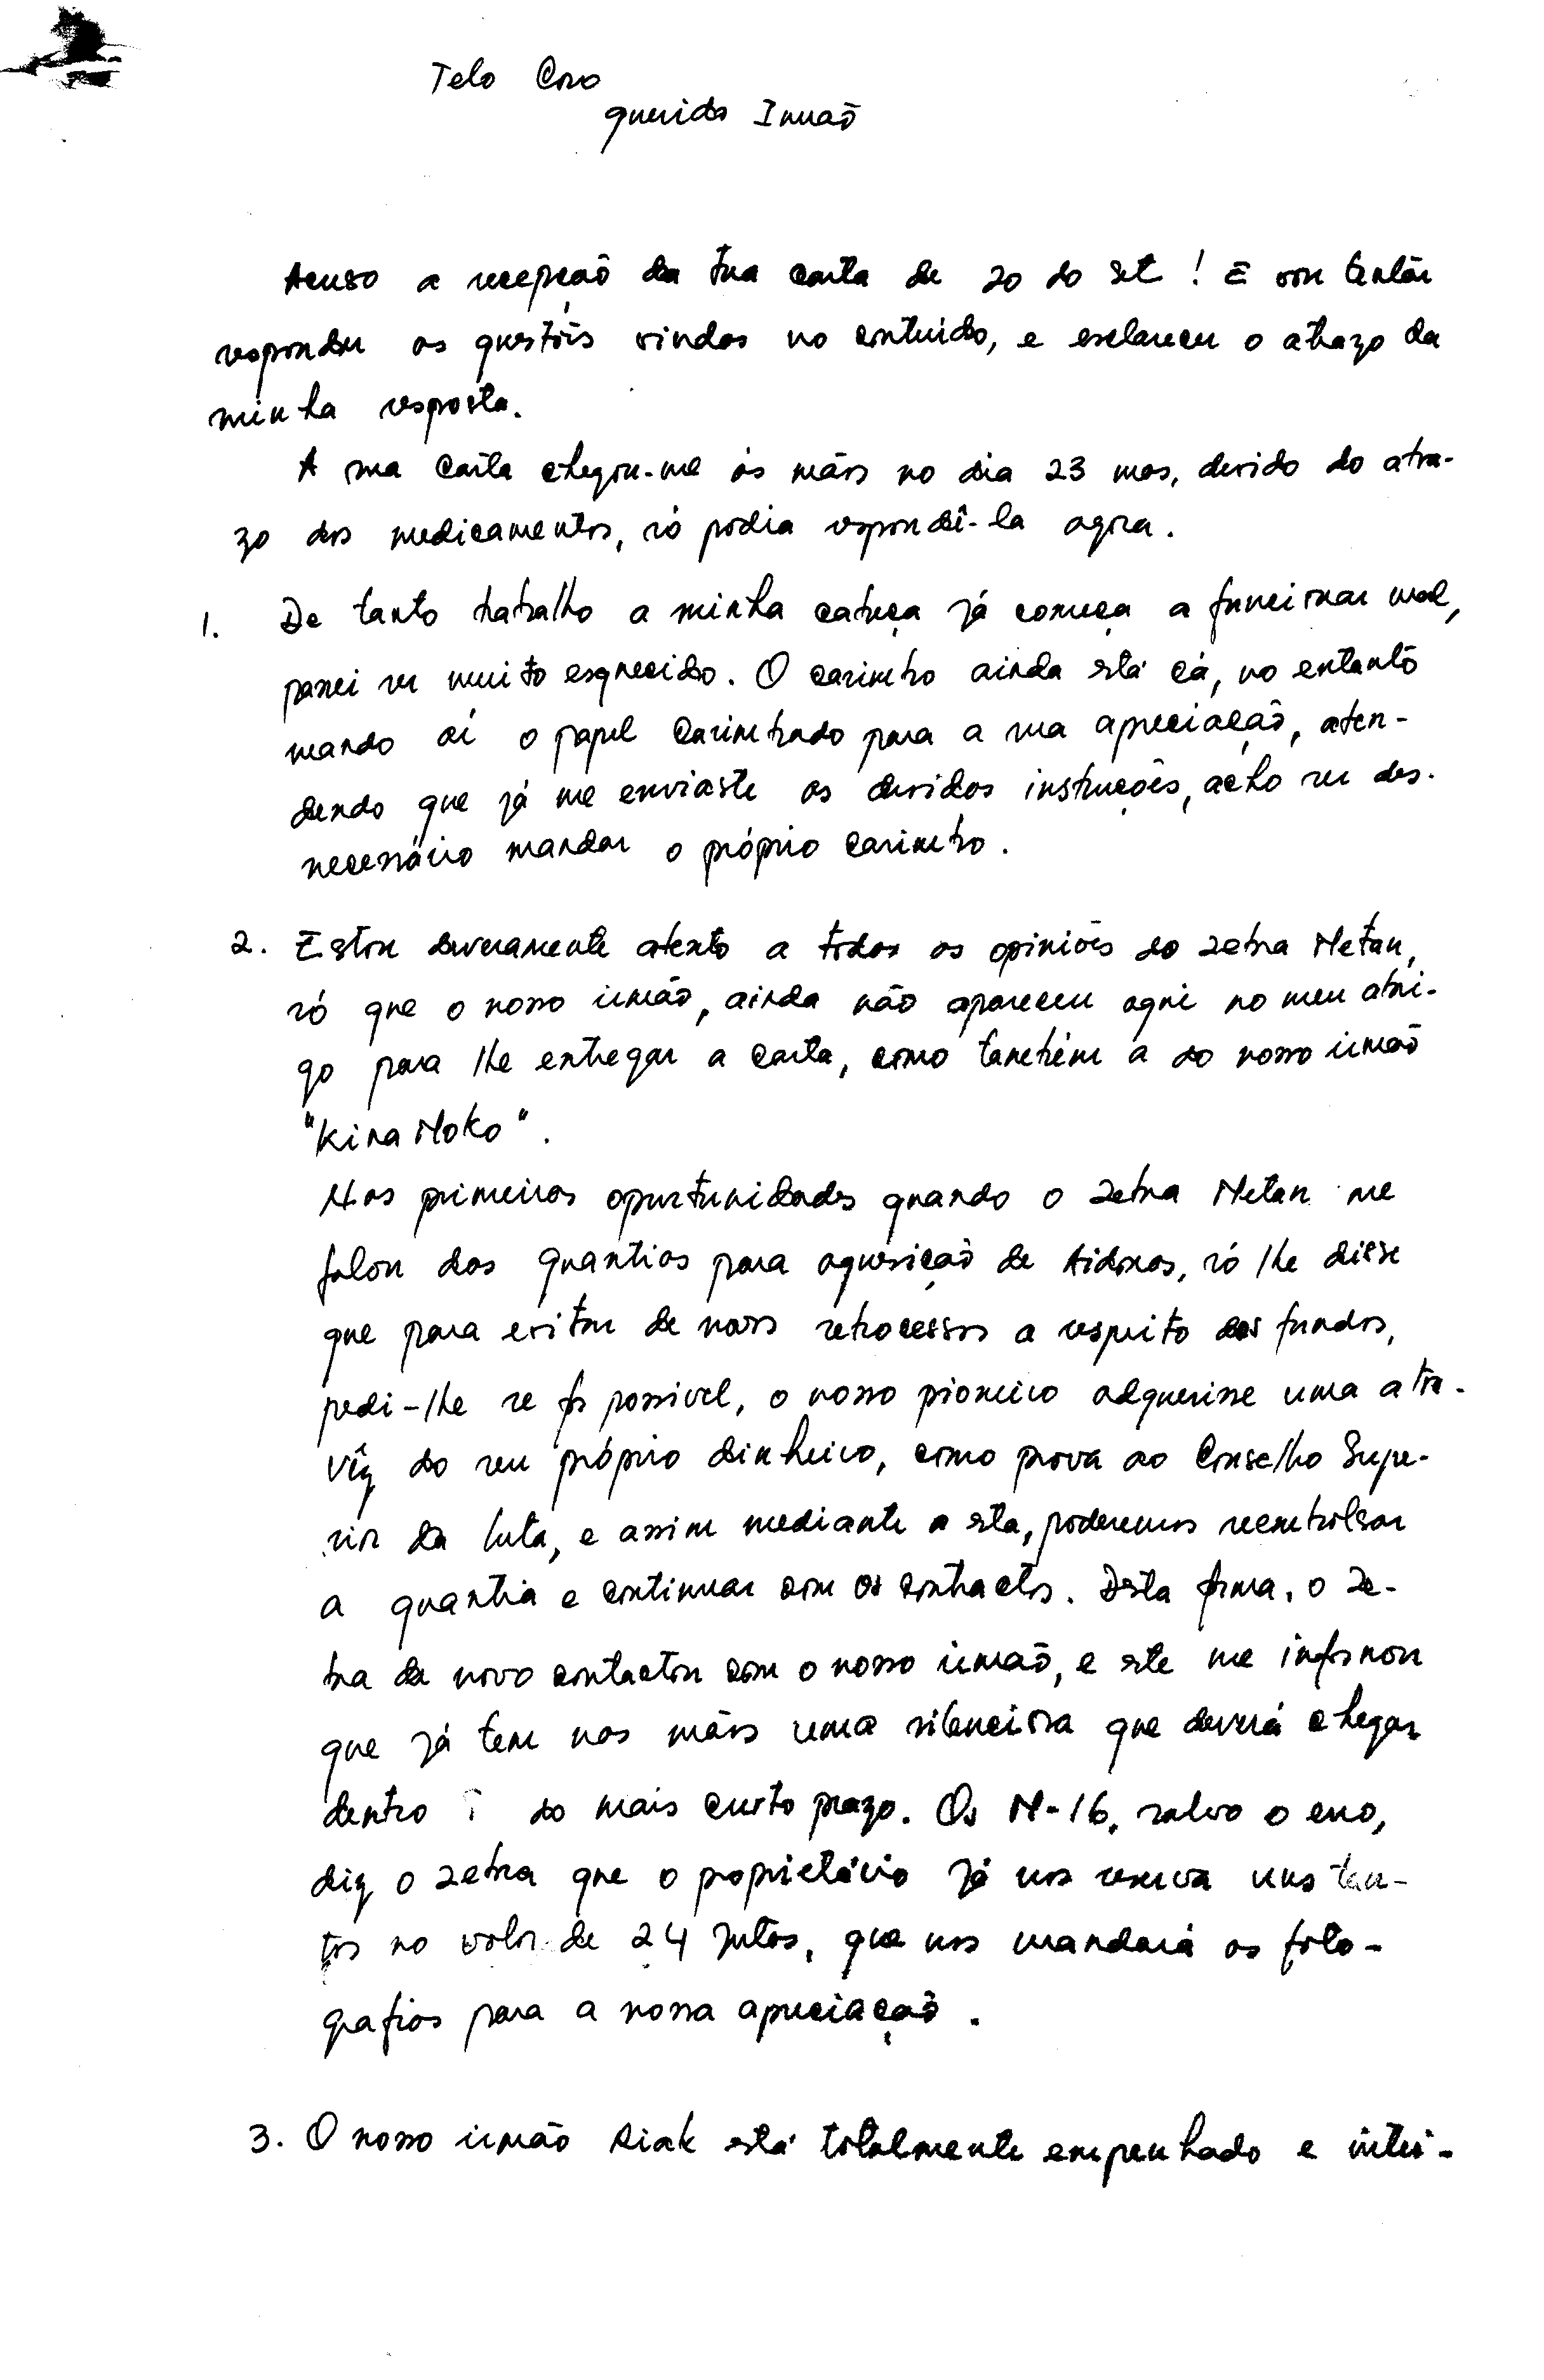 Telo Cono
querido Irmão
Acuso a recepção da tua carta de 20 do set! E vou tentar
responder as questões vindas no contuúdo, e esclarecer o atrazo da
minha resposta.
A sua carta chegou-me ás mãos no dia 23 mas, devido do atra-
zo dos medicamentos, só podia respondê-la agora.
1. De tanto trabalho a minha cabeça já começa a funcionar mal,
passei ser muito esquecido. O carimbo ainda está cá, no entanto
mando aí o papel carimbado para a sua apreciação, aten-
dendo que já me enviaste as devidas instruções, acho ser des-
necessário mandar o próprio carimbo.
2. Estou deveramente atento a todas as opiniões do zebra Metan,
só que o nosso irmão, ainda não apareceu aqui no meu abri-
go para lhe entregar a carta, como também a do nosso irmão
"Kina Moko".
Nas primeiras oportunidades quando o zebra Metan me
falou das quantias para aquesição de Aidonas, só lhe disse
que para evitar de novos retrocessos a respeito dos fundos,
pedi-lhe se for possivel, o nosso pioneiro adquerisse uma atra-
vêz do seu próprio dinheiro, como prova ao Conselho Supe-
rior da luta, e assim mediante a esta, poderemos reembolsar
a quantia e continuar com os contractos. Desta forma, o ze-
bra de novo contactou com o nosso irmão, e este me informou
que já tem nas mãos uma silenciosa que deverá chegar
dentro do mais curto prazo. Os M-16, salvo o erro,
diz o zebra que o proprietário já nos reserva uns tan-
tos no valor de 24 jutas, que nos mandará as foto-
grafias para a nossa apreciação.
3. O nosso irmão Riak está totalmente empenhado e intei-